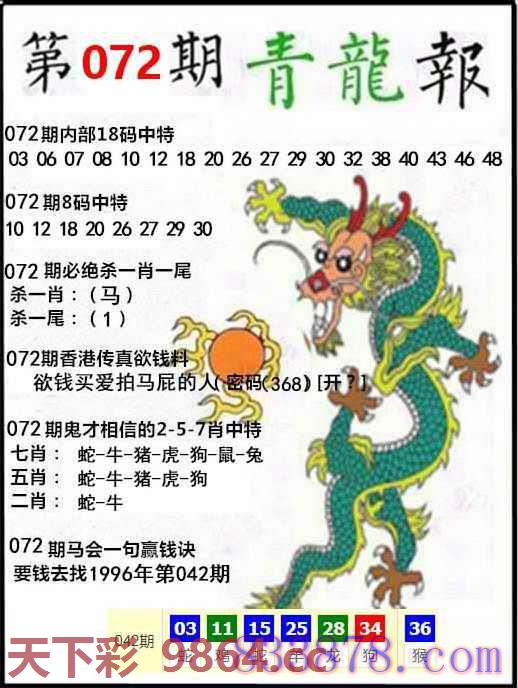 第072期 青龍報
072期内部18码中特
03 06 07 08 10 12 18 20 26 27 29 30 32 38 40 43 46 48
072期8码中特
10 12 18 20 26 27 29 30
072期必绝杀一肖一尾
杀一肖：（马）
杀一尾：（1）
072期香港传真欲钱料
欲钱买爱拍马屁的人(密码(368) [开？]
072期鬼才相信的2-5-7肖中特
七肖： 蛇-牛-猪-虎-狗-鼠-兔
五肖： 蛇-牛-猪-虎-狗
二肖： 蛇-牛
072期马会一句赢钱诀
要钱去找1996年第042期
042期 03 11 15 25 28 34 36
蛇 鸡 羊 龙 狗 猴
天下彩 9864.cc